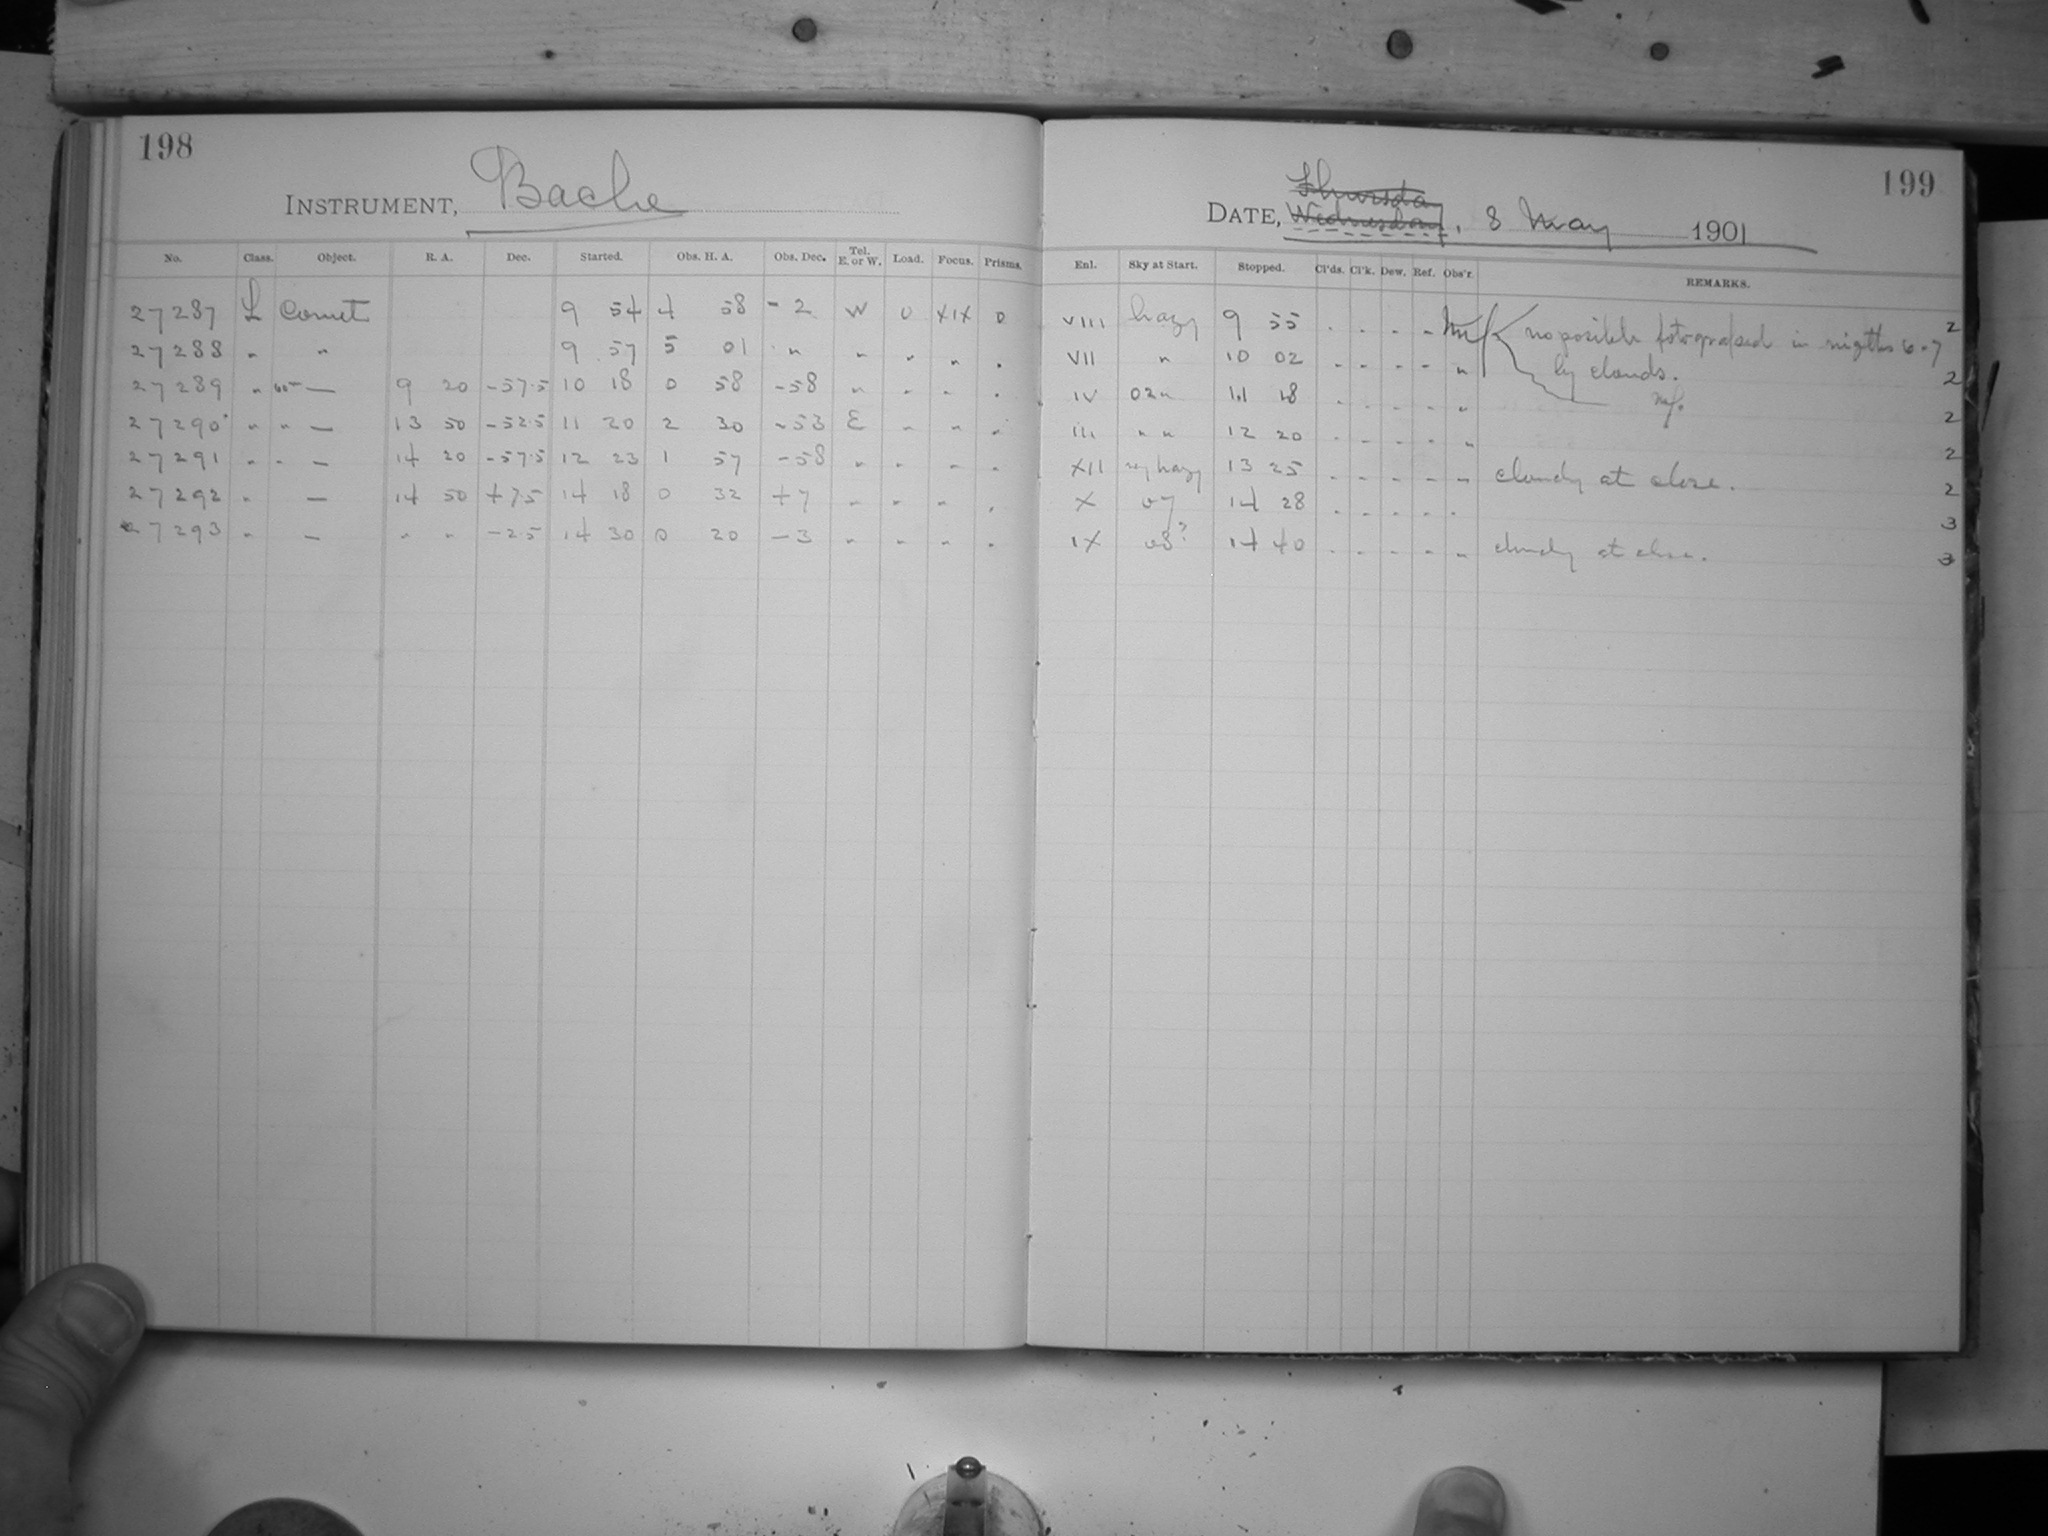 198
INSTRUMENT, Bache
No. Class. Object. R. A. Dec. Started. Obs. H. A. Obs. Dec. Tel. E. or W. Load. Focus. Prisms.
27287 L Comet 9 54 4 58 - 2 W 0 XIX 0
27288 " " 9 57 5 01 " " " " "
27289 " 60m — 9 20 -57.5 10 18 0 58 -58 " " " "
27290 " " — 13 50 -52.5 11 20 2 30 -53 E " " "
27291 " " — 14 20 -57.5 12 23 1 57 -58 " " " "
27292 " — 14 50 +7.5 14 18 0 32 +7 " " " "
27293 " — " " -2.5 14 30 0 20 -3 " " " "
199
Thursday
DATE, Wednesday, 8 May 1901
Enl. Sky at Start. Stopped. Cl'ds. Cl'k. Dew. Ref. Obs'r. REMARKS.
VIII hazy 9 55 . . . . no posible fotographed in nigths 6-7 2
VII " 10 02 - - - - " by clouds. 2
IV 02" 11 18 - - - - " 2
III " " 12 20 - - - - " 2
XII hazy 13 25 - - - - " cloudy at close. 2
X 07 14 28 . . . . . 3
IX 08? 14 40 . . . . " cloudy at close. 3